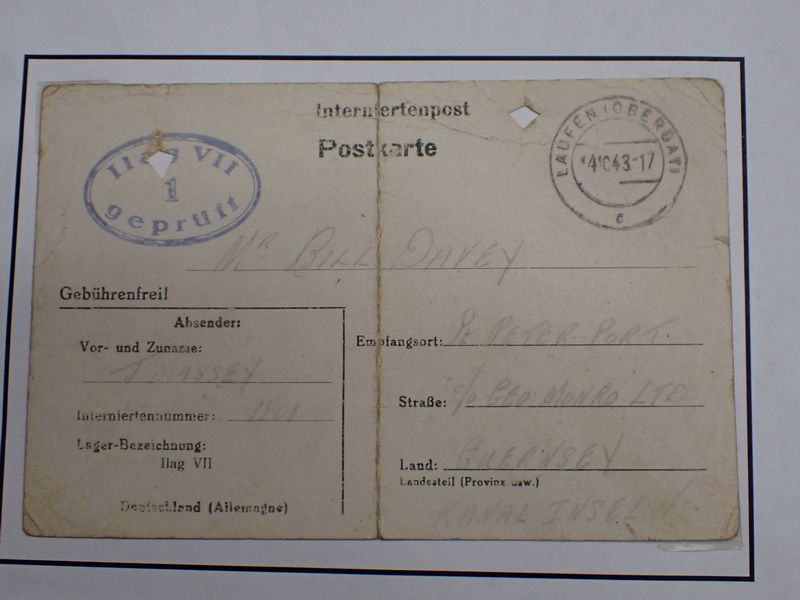 Interniertenpost
Postkarte
Ilag VII
1
geprüft
LAUFEN (OBERBAY)
4.10.43-17
c
Mr BILL DAVEY
Gebührenfrei!
Absender:
Vor- und Zuname:
J MASSEY
Interniertennummer: 1901
Lager-Bezeichnung:
Ilag VII
Deutschland (Allemagne)
Empfangsort: PETER PORT
Straße: c/o GEO MONRO LTD
Land: GUERNSEY
Landesteil (Provinz usw.)
KANAL INSELN